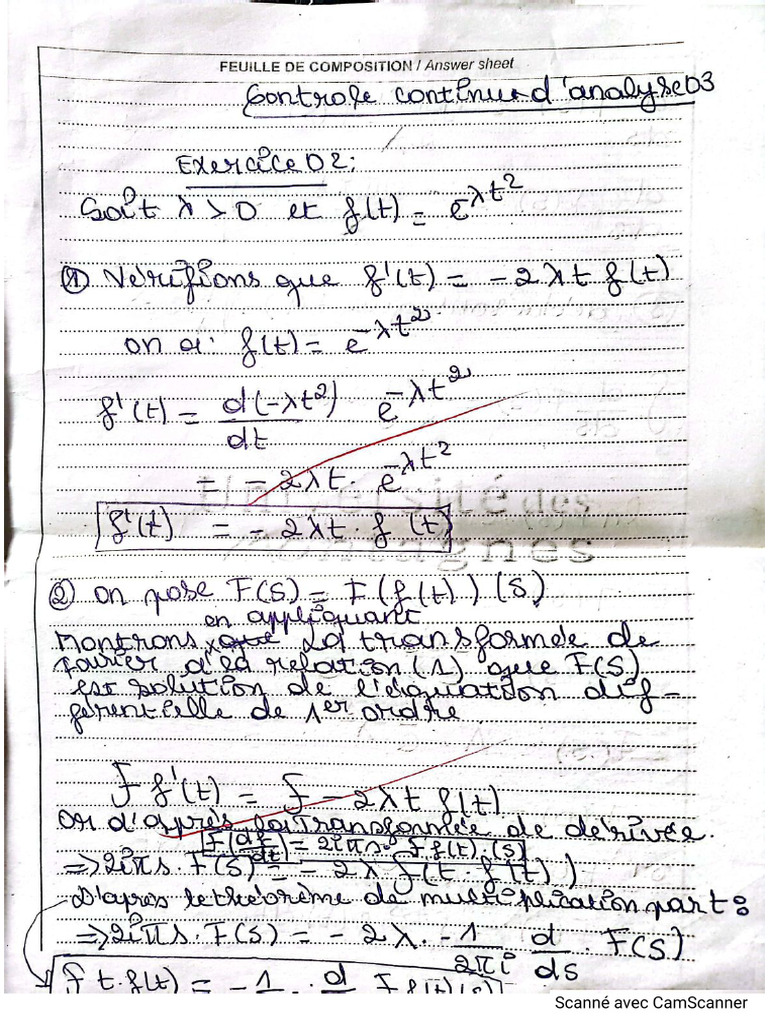 FEUILLE DE COMPOSITION / Answer sheet
Controle continu d'analyse03
Exercice 02:
Soit λ > 0 et f(t) = e^λt²
① Vérifions que f'(t) = -2λt f(t)
on a: f(t) = e^-λt²
f'(t) = d(-λt²)/dt e^-λt²
= -2λt. e^-λt²
Université des
f'(t) = -2λt. f(t)
Montagnes
② on pose F(S) = F(f(t))(S)
en appliquant
Montrons que la transformée de
fourier d la relation (1) que F(S)
est solution de l'équation dif-
férentielle de 1er ordre
F f'(t) = F -2λt f(t)
Or d'après la transformée de dérivée.
F(df/dt) = 2iπs. F f(t).(s)
=> 2iπs. F(s) = -2λ F(t. f(t))
D'apres le théorème de multiplication par t:
=> 2iπs. F(S) = -2λ. -1/2πi d/ds. F(S)
F t. f(t) = -1 . d F f(t)(s)
Scanné avec CamScanner